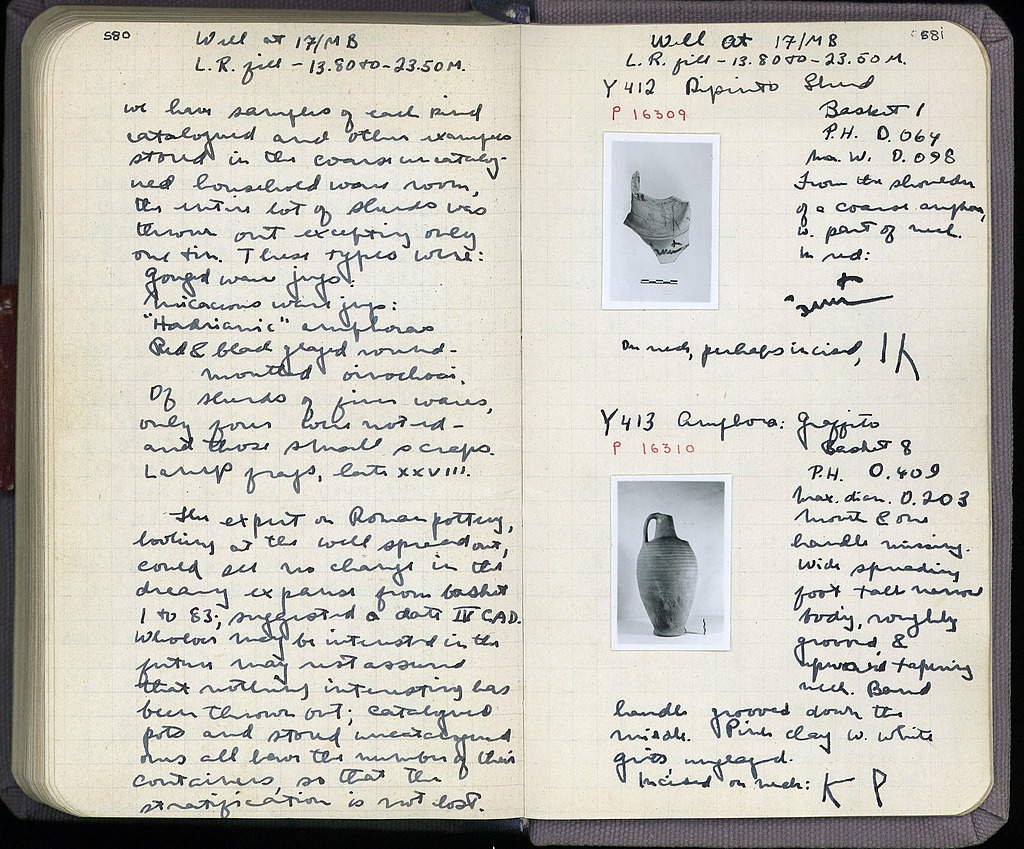 580
Well at 17/MB
L.R. fill - 13.80 to - 23.50 M.
we have samples of each kind
catalogued and other examples
stored in the coarse uncatalog-
ued household ware room,
the entire lot of sherds was
thrown out excepting only
one tin. These types were:
Gouged ware jugs:
Micaceous ware jugs:
"Hadrianic" amphoras
Red & black glazed round-
mouthed oinochoai.
Of sherds of finer wares,
only four were noted -
and those small scraps.
Lamp frags, late XXVIII.
The expert on Roman pottery,
looking at the well spread out,
could see no change in the
dreary expanse from basket
1 to 83; suggested a date IV C AD.
Whoever may be interested in the
future may rest assured
that nothing interesting has
been thrown out; catalogued
pots and stored uncatalogued
ones all bear the number of their
containers, so that the
stratification is not lost.
581
Well at 17/MB
L.R. fill - 13.80 to - 23.50 M.
Y 412 Dipinto Sherd
P 16309
Basket 1
P.H. 0.064
Max. W. 0.098
From the shoulder
of a coarse amphora,
w. part of neck.
In red:
On neck, perhaps incised, IK
Y 413 Amphora: Graffito
P 16310
Basket 8
P.H. 0.409
Max. diam. 0.203
Mouth & one
handle missing.
Wide spreading
foot tall narrow
body, roughly
grooved, &
upward tapering
neck. Band
handle grooved down the
middle. Pink clay w. white
grits unglazed.
Incised on neck: K P